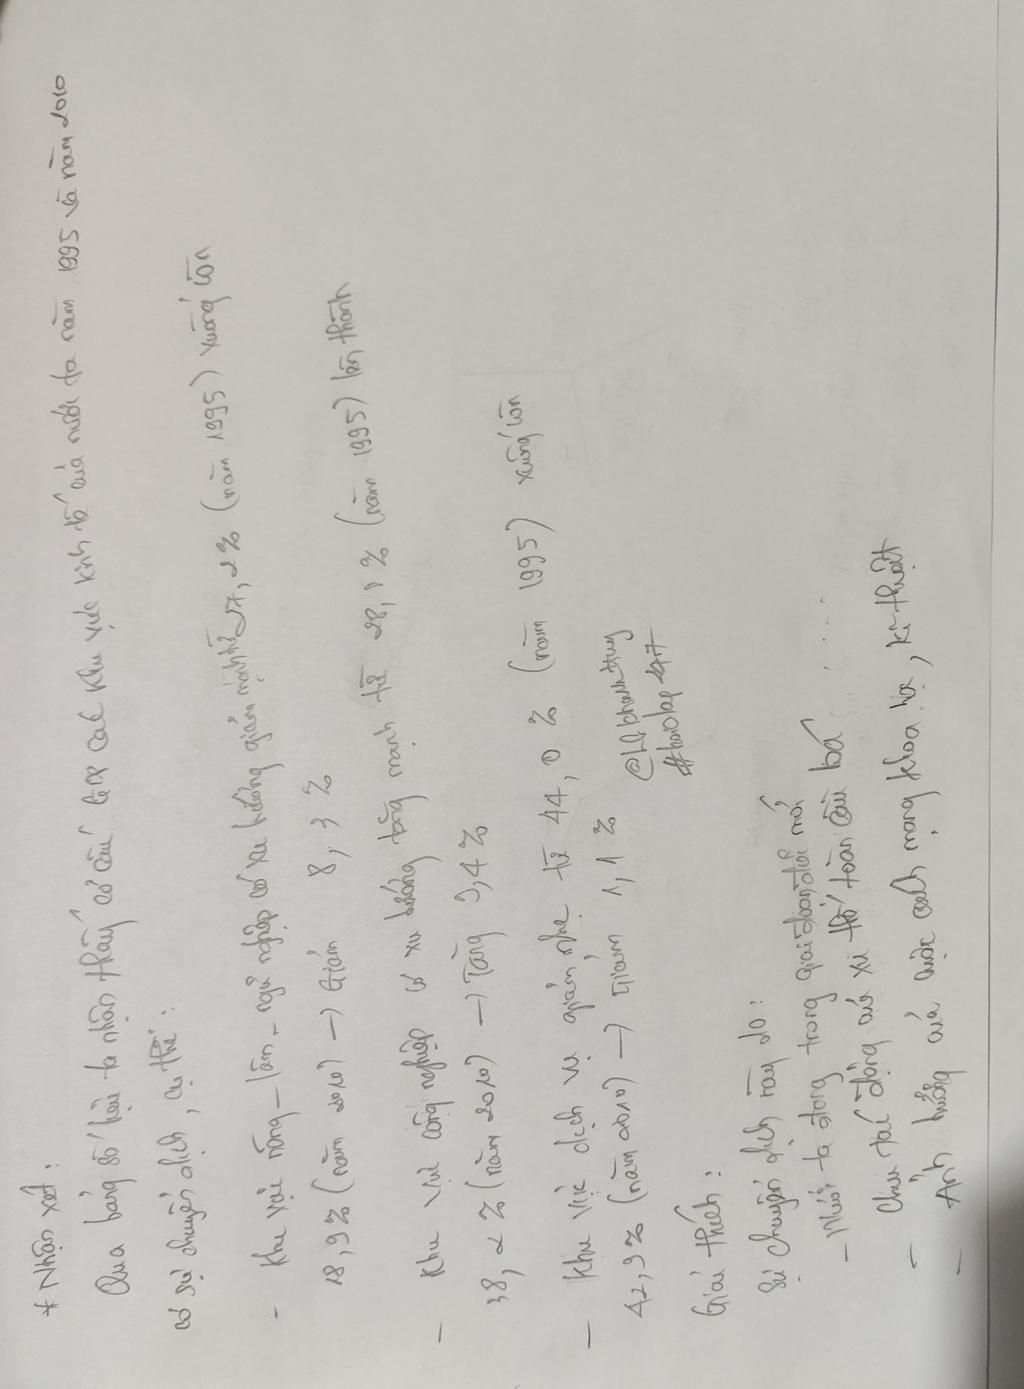 * Nhận xét:
Qua bảng số liệu ta nhận thấy cơ cấu GDP các khu vực kinh tế của nước ta năm 1995 và năm 2010
có sự chuyển dịch, cụ thể:
- Khu vực nông - lâm - ngư nghiệp có xu hướng giảm mạnh từ 27,2% (năm 1995) xuống còn
18,9% (năm 2010) → Giảm 8,3%
- Khu vực công nghiệp có xu hướng tăng mạnh từ 28,1% (năm 1995) lên thành
38,2% (năm 2010) → Tăng 9,4%
- Khu vực dịch vụ giảm nhẹ từ 44,0% (năm 1995) xuống còn
42,9% (năm 2010) → Giảm 1,1%
@LQkhanhthuy
Giải thích:
Sự chuyển dịch này do:
- Nước ta đang trong giai đoạn đổi mới
- Chịu tác động của xu thế toàn cầu hoá
- Ảnh hưởng của cuộc cách mạng khoa học, kĩ thuật